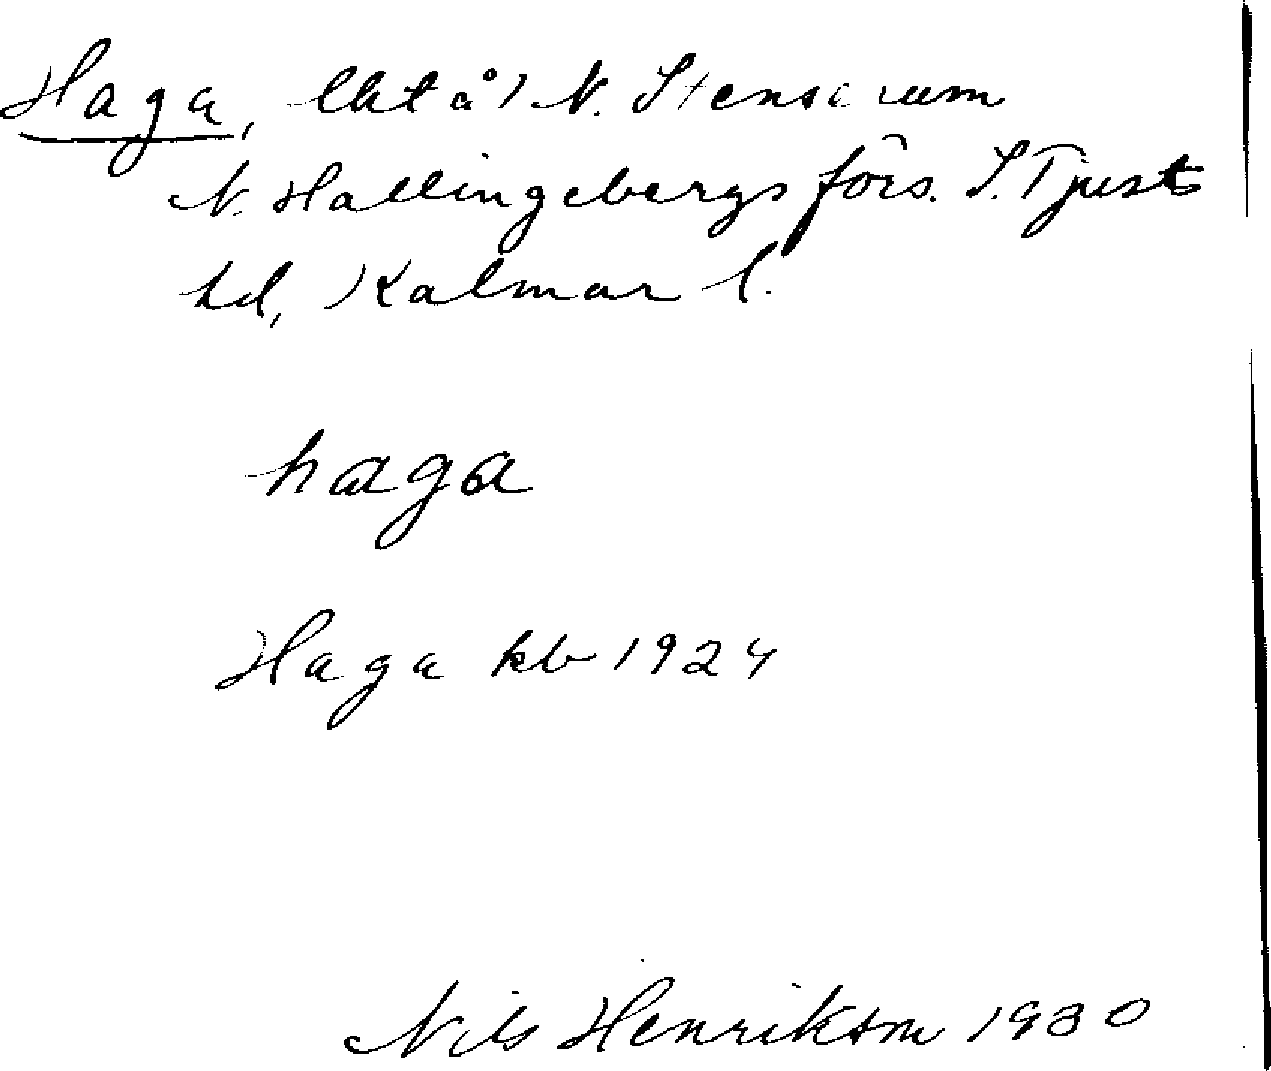 Haga, lht å N. Stensarum
N. Hallingebergs förs. S. Tjusts
hd, Kalmar l.
haga
Haga kb 1924
Nils Henrikson 1930